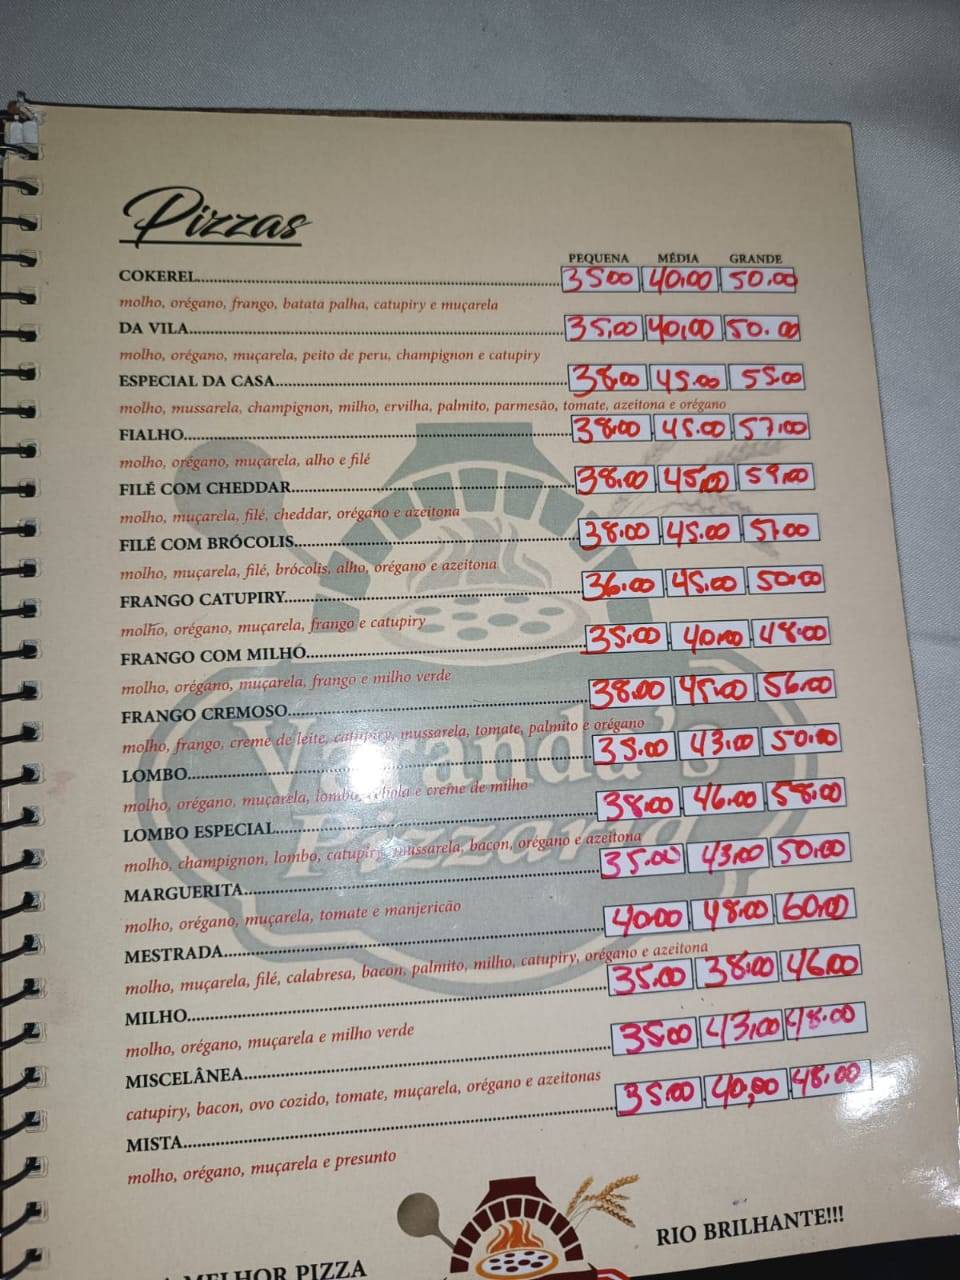 Pizzas
PEQUENA MÉDIA GRANDE
COKEREL 35,00 40,00 50,00
molho, orégano, frango, batata palha, catupiry e muçarela
DA VILA 35,00 40,00 50,00
molho, orégano, muçarela, peito de peru, champignon e catupiry
ESPECIAL DA CASA 38,00 45,00 55,00
molho, mussarela, champignon, milho, ervilha, palmito, parmesão, tomate, azeitona e orégano
FIALHO 38,00 45,00 57,00
molho, orégano, muçarela, alho e filé
FILÉ COM CHEDDAR 38,00 45,00 59,00
molho, muçarela, filé, cheddar, orégano e azeitona
FILÉ COM BRÓCOLIS 38,00 45,00 57,00
molho, muçarela, filé, brócolis, alho, orégano e azeitona
FRANGO CATUPIRY 36,00 45,00 50,00
molho, orégano, muçarela, frango e catupiry
FRANGO COM MILHO 35,00 40,00 48,00
molho, orégano, muçarela, frango e milho verde
FRANGO CREMOSO 38,00 45,00 56,00
molho, frango, creme de leite, catupiry, mussarela, tomate, palmito e orégano
LOMBO 35,00 43,00 50,00
molho, orégano, muçarela, lombo, cebola e creme de milho
LOMBO ESPECIAL 38,00 46,00 58,00
molho, champignon, lombo, catupiry, mussarela, bacon, orégano e azeitona
MARGUERITA 35,00 43,00 50,00
molho, orégano, muçarela, tomate e manjericão
MESTRADA 40,00 48,00 60,00
molho, muçarela, filé, calabresa, bacon, palmito, milho, catupiry, orégano e azeitona
MILHO 35,00 38,00 46,00
molho, orégano, muçarela e milho verde
MISCELÂNEA 35,00 43,00 48,00
catupiry, bacon, ovo cozido, tomate, muçarela, orégano e azeitonas
MISTA 35,00 40,00 48,00
molho, orégano, muçarela e presunto
Varanda's
Pizzaria
MELHOR PIZZA
RIO BRILHANTE!!!